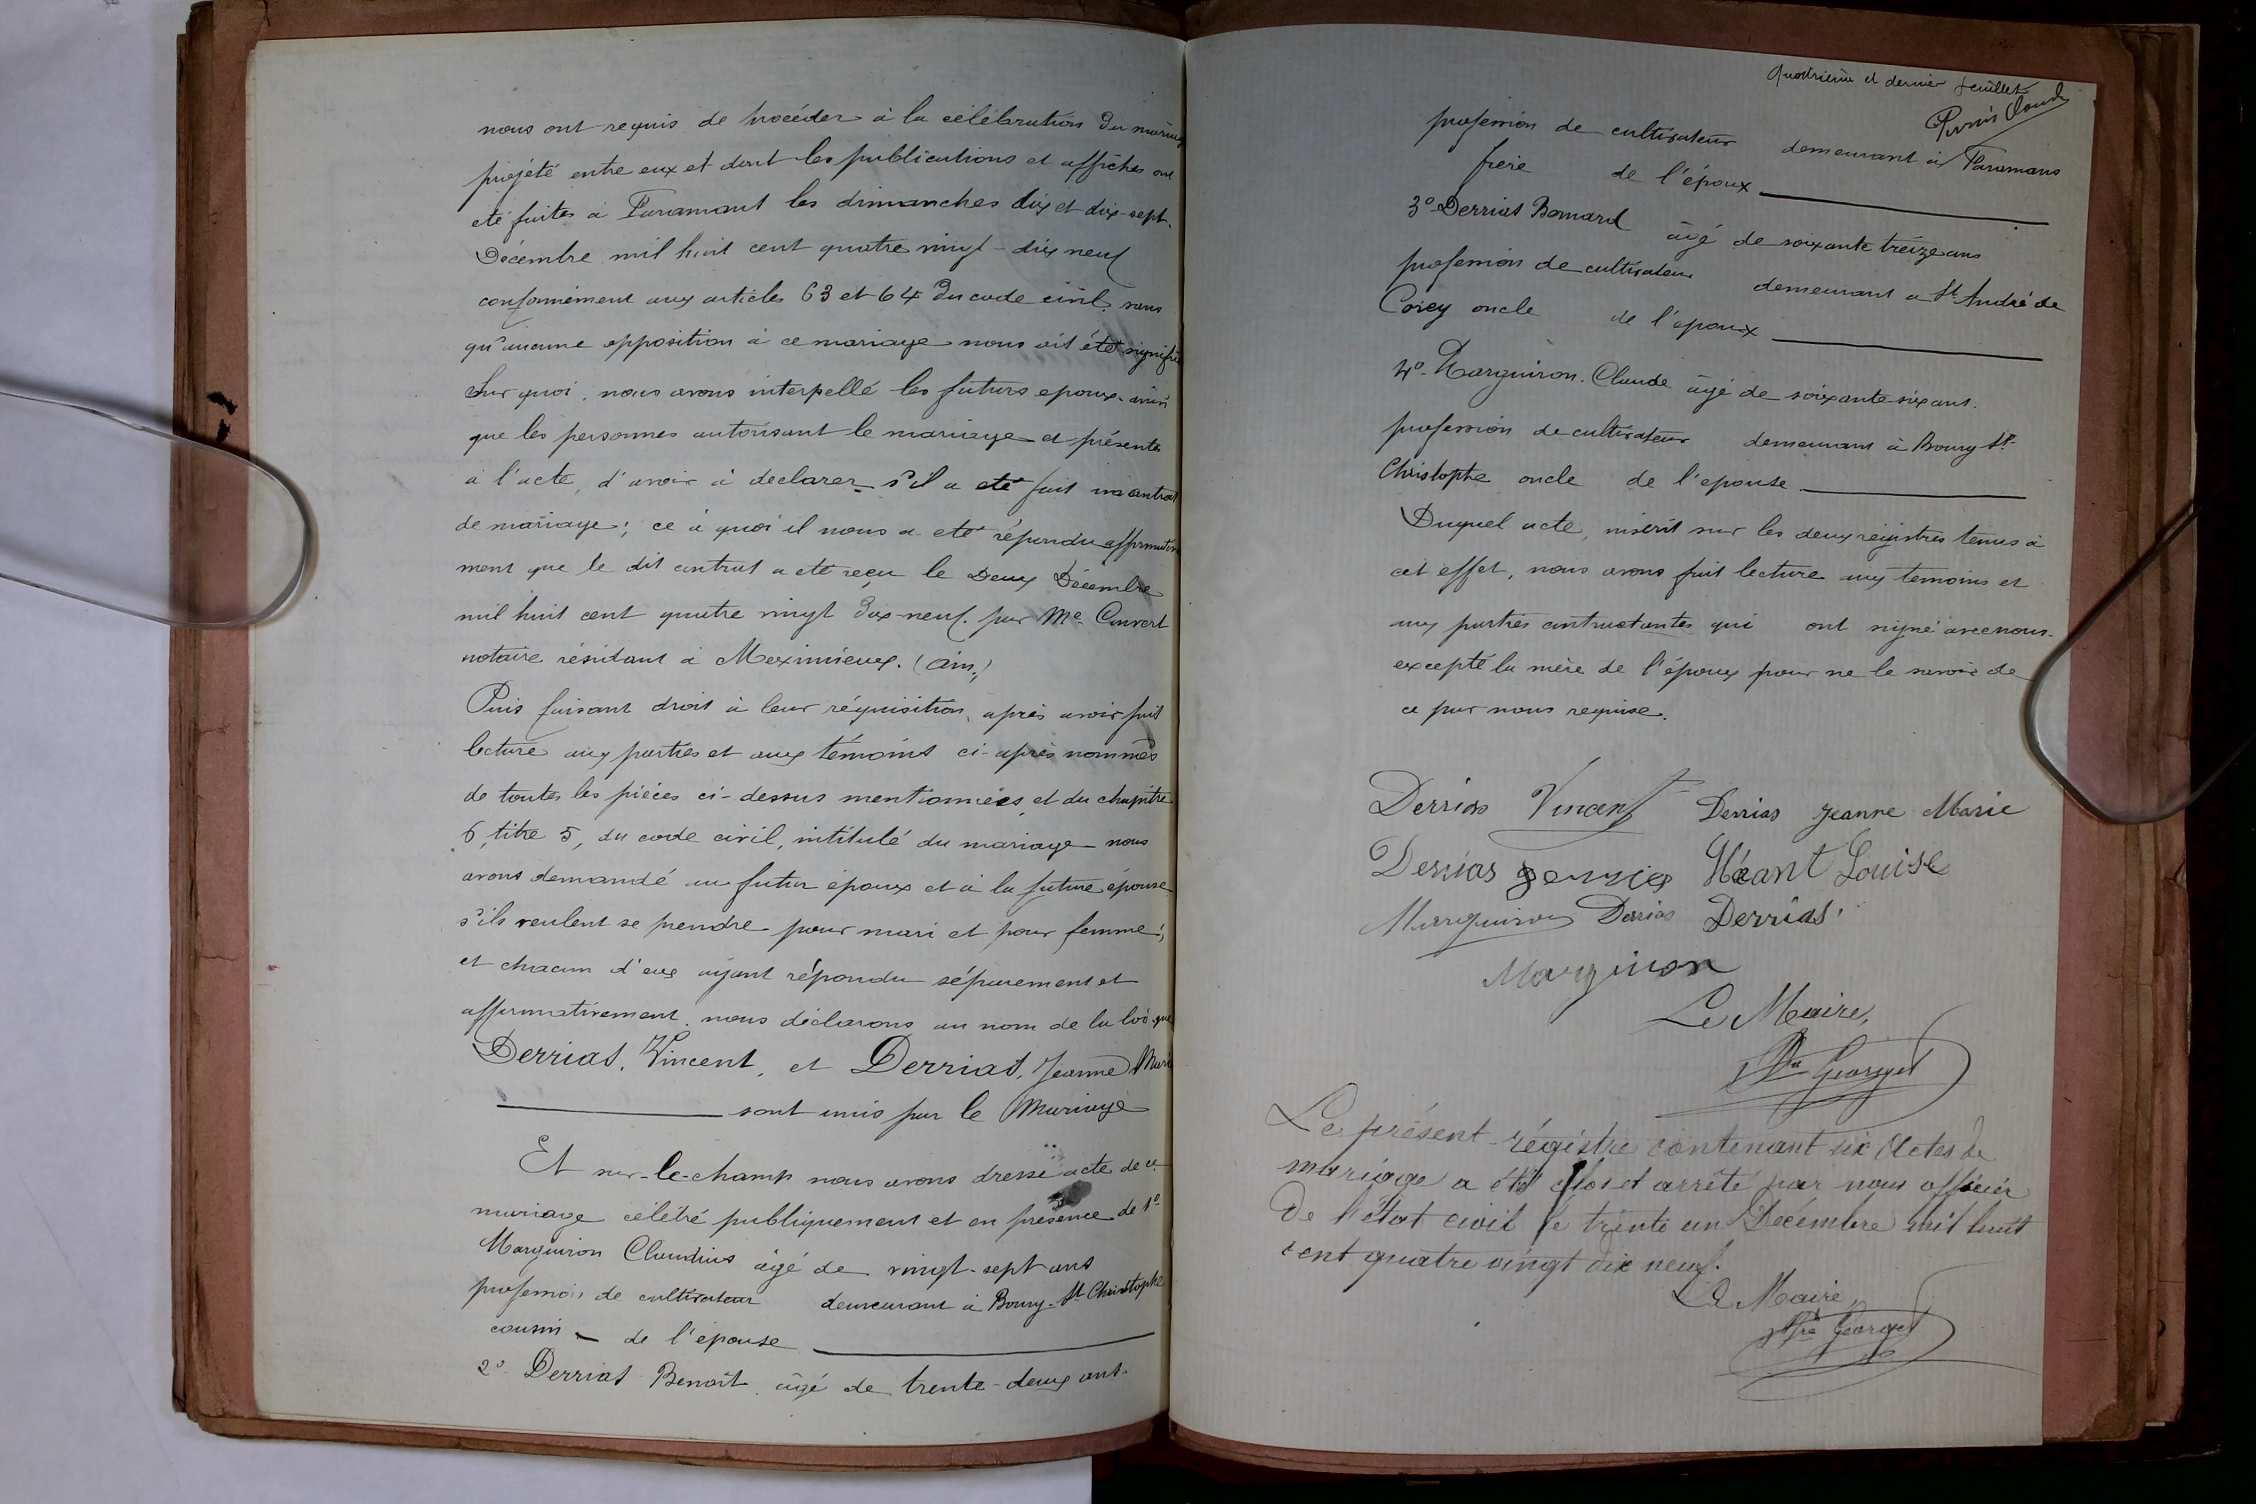 nous ont requis de procéder à la célébration du mariage
projété entre eux et dont les publications et affiches ont
eté faites à Faramans les dimanches dix et dix-sept
Décembre mil huit cent quatre vingt-dix neuf
conformément aux articles 63 et 64 du code civil, sans
qu'aucune opposition à ce mariage nous ait été signifiée
Sur quoi, nous avons interpellé les futurs epoux, ainsi
que les personnes autorisant le mariage et présentes
à l'acte, d'avoir à declarer s'il a eté fait un contrat
de mariage; ce à quoi il nous a eté répondu affirmative
ment que le dit contrat a eté reçu le Deux Décembre
mil huit cent quatre vingt dix-neuf par Me Convert
notaire résidant à Meximieux. (Ain.)
Puis faisant droit à leur réquisition, après avoir fait
lecture aux parties et aux témoins ci-après nommés
de toutes les pièces ci-dessus mentionnées, et du chapitre
6, titre 5, du code civil, intitulé du mariage nous
avons demandé au futur époux et à la future épouse
s'ils veulent se prendre pour mari et pour femme;
et chacun d'eux ayant répondu séparement et
affirmativement, nous déclarons au nom de la loi que
Derrias, Vincent, et Derrias, Jeanne Marie
sont unis par le Mariage
Et sur-le-champ nous avons dressé acte de ce
mariage célébré publiquement et en présence de 1º
Marguiron Claudius âgé de vingt-sept ans
profession de cultivateur demeurant à Bourg-St Christophe
cousin de l'épouse
2º Derrias Benoît âgé de trente-deux ans.
Quatrième et dernier feuillet
profession de cultivateur demeurant à Faramans
frère de l'époux
3º Derrias Bernard âgé de soixante treize ans
profession de cultivateur demeurant a St André de
Corcy oncle de l'epoux
4º Marguiron Claude âgé de soixante-six ans.
profession de cultivateur demeurant à Bourg St
Christophe oncle de l'epouse
Duquel acte, inscrit sur les deux régistres tenus à
cet effet, nous avons fait lecture aux temoins et
aux parties contractantes qui ont signé avec nous.
excepté la mère de l'époux pour ne le savoir de
ce par nous requise.
Derrias Vincent Derrias Jeanne Marie
Derrias Louise
Marguiron Derrias Derrias
Marguiron
Le Maire,
Georget
Le présent régistre contenant six Actes de
mariage a été clos et arrêté par nous officier
De l'état civil le trente un Décembre mil huit
cent quatre vingt dix neuf.
Le Maire
Georget